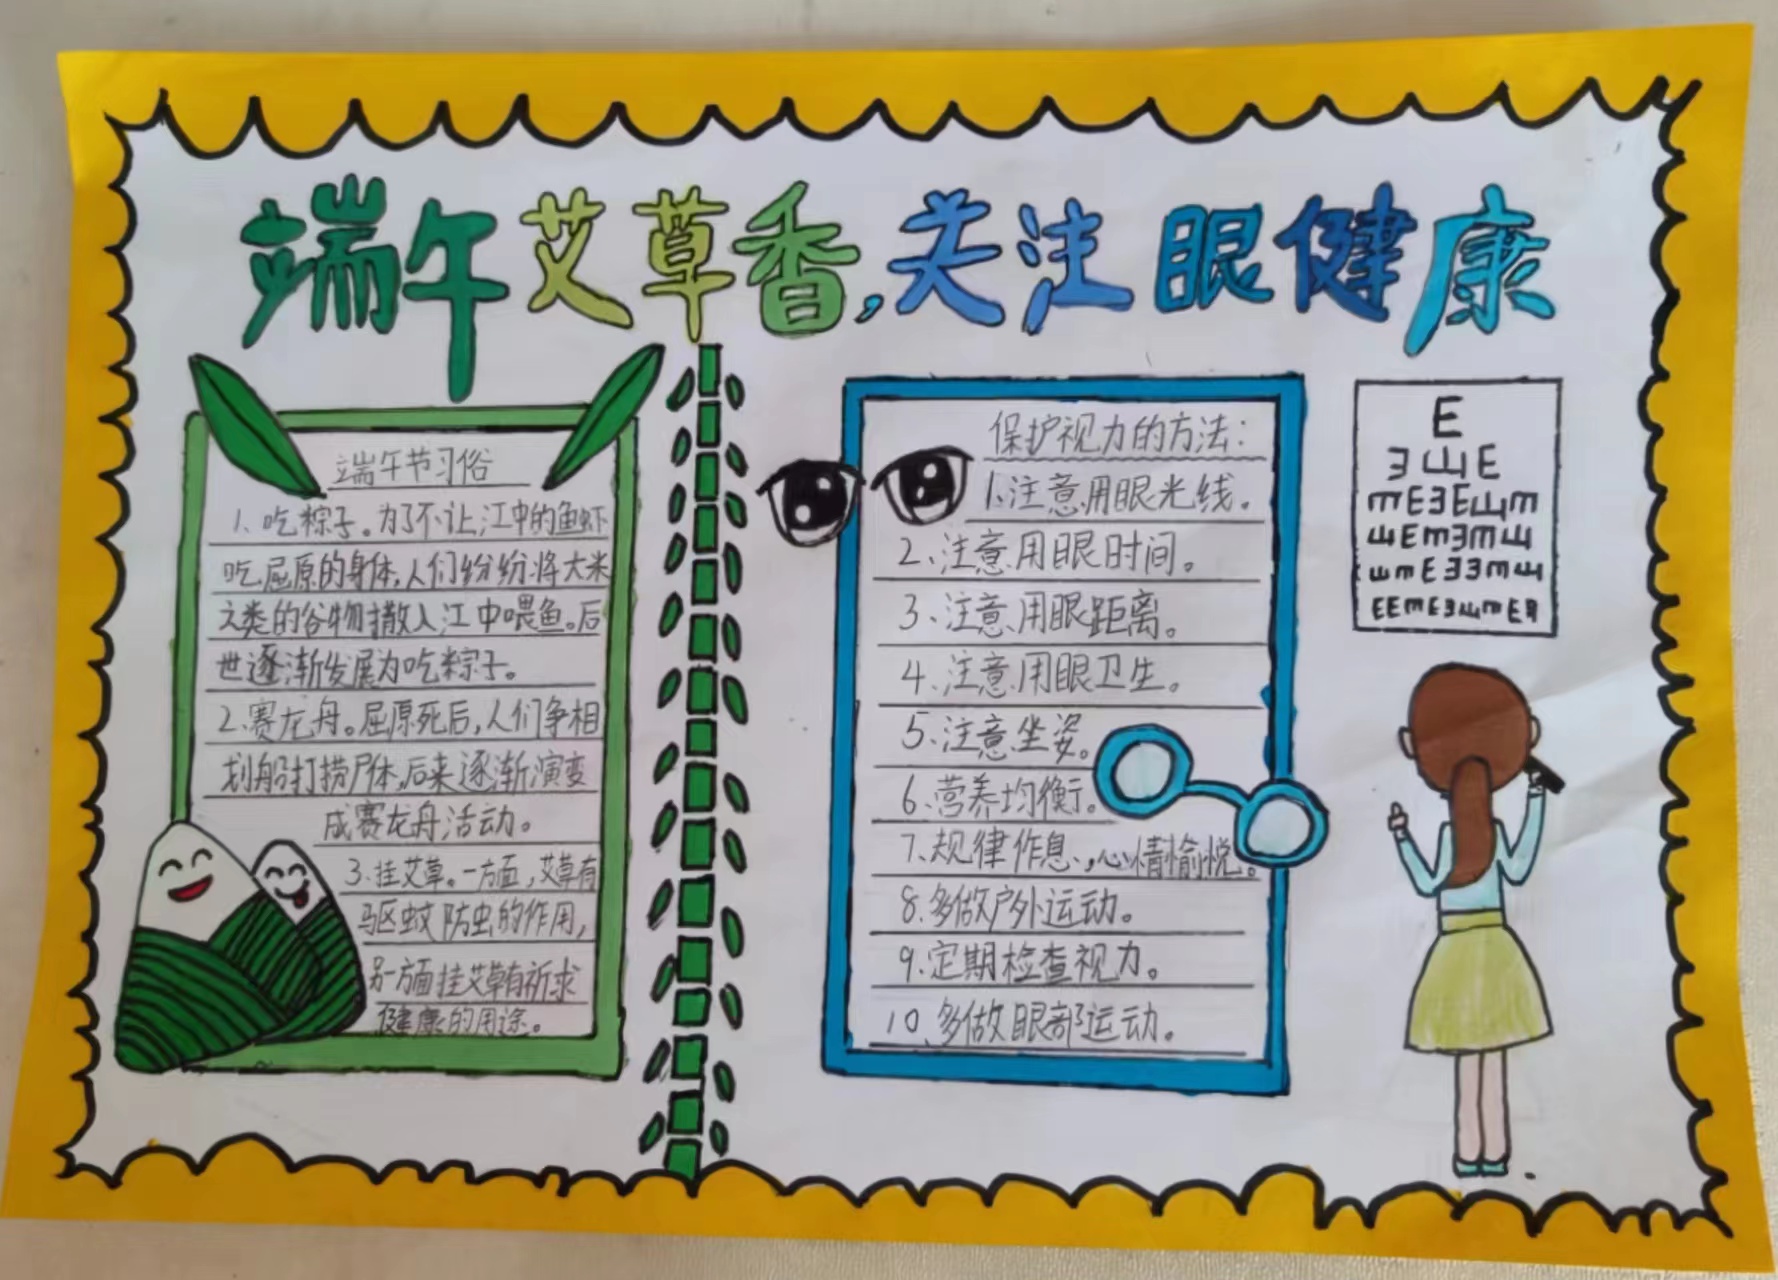 端午艾草香，关注眼健康
端午节习俗
1、吃粽子。为了不让江中的鱼虾
吃屈原的身体，人们纷纷将大米
之类的谷物撒入江中喂鱼。后
世逐渐发展为吃粽子。
2、赛龙舟。屈原死后，人们争相
划船打捞尸体，后来逐渐演变
成赛龙舟活动。
3、挂艾草。一方面，艾草有
驱蚊防虫的作用，
另一方面挂艾草有祈求
健康的用途。
保护视力的方法：
1、注意用眼光线。
2、注意用眼时间。
3、注意用眼距离。
4、注意用眼卫生。
5、注意坐姿。
6、营养均衡。
7、规律作息，心情愉悦。
8、多做户外运动。
9、定期检查视力。
10、多做眼部运动。
E
ヨ山E